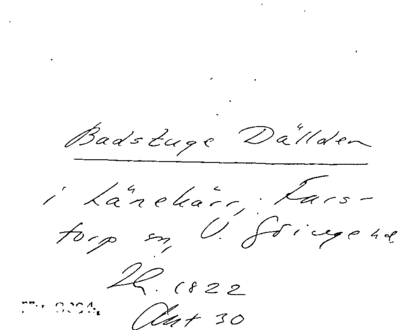 Badstuge Dällden
i Länekärr, Fars-
torp sn, V. Göinge hd
1822
30